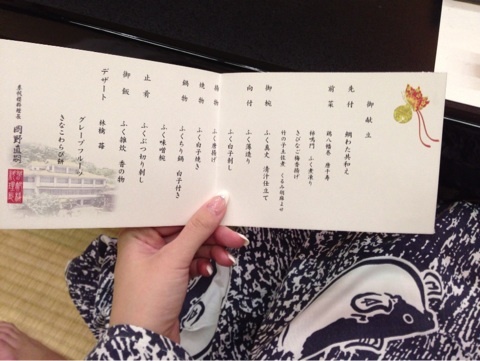 御献立
先付 鯛わた共和え
前菜 鶏八幡巻 唐千寿
柿鳴門 ふく煮凍り
きびなご梅香揚げ
竹の子土佐煮 くるみ胡麻よせ
御椀 ふく真丈 清汁仕立て
向付 ふく薄造り
ふく白子刺し
揚物 ふく唐揚げ
焼物 ふく白子焼き
鍋物 ふくちり鍋 白子付き
ふく味噌椀
止肴 ふくぶつ切り刺し
御飯 ふく雑炊 香の物
デザート 林檎 苺
グレープフルーツ
きなこわらび餅